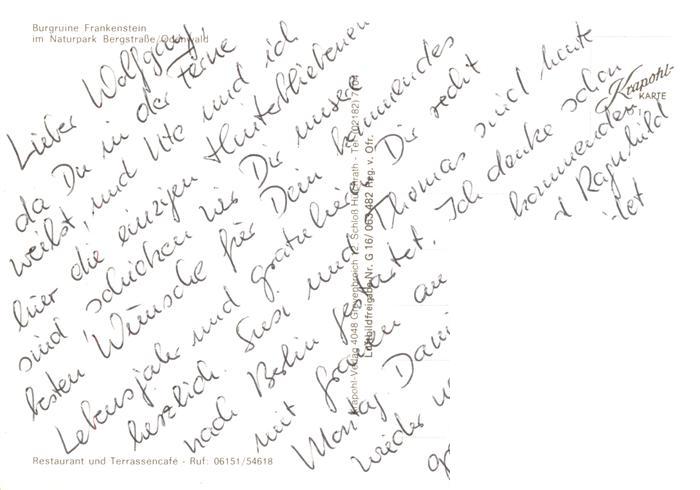 Burgruine Frankenstein
im Naturpark Bergstraße/Odenwald
Lieber Wolfgang
da Du in der Ferne
weilst, und Ute und ich
hier die einzigen Hinterbliebenen
sind schicken wir Dir unsere
besten Wünsche für Dein kommendes
Lebensjahr und gratulieren Dir recht
herzlich. Susi und Thomas sind heute
nach Berlin gestartet. Ich denke schon
mit Grauen an kommenden
Montag
wieder
Krapohl-
KARTE
Krapohl-Verlag 4048 Grevenbroich 12, Schloß Hülchrath - Tel. (02182) 7
Luftbildfreigabe Nr. G 16/ 063 482 Reg. v. Ofr.
Restaurant und Terrassencafé - Ruf: 06151/54618